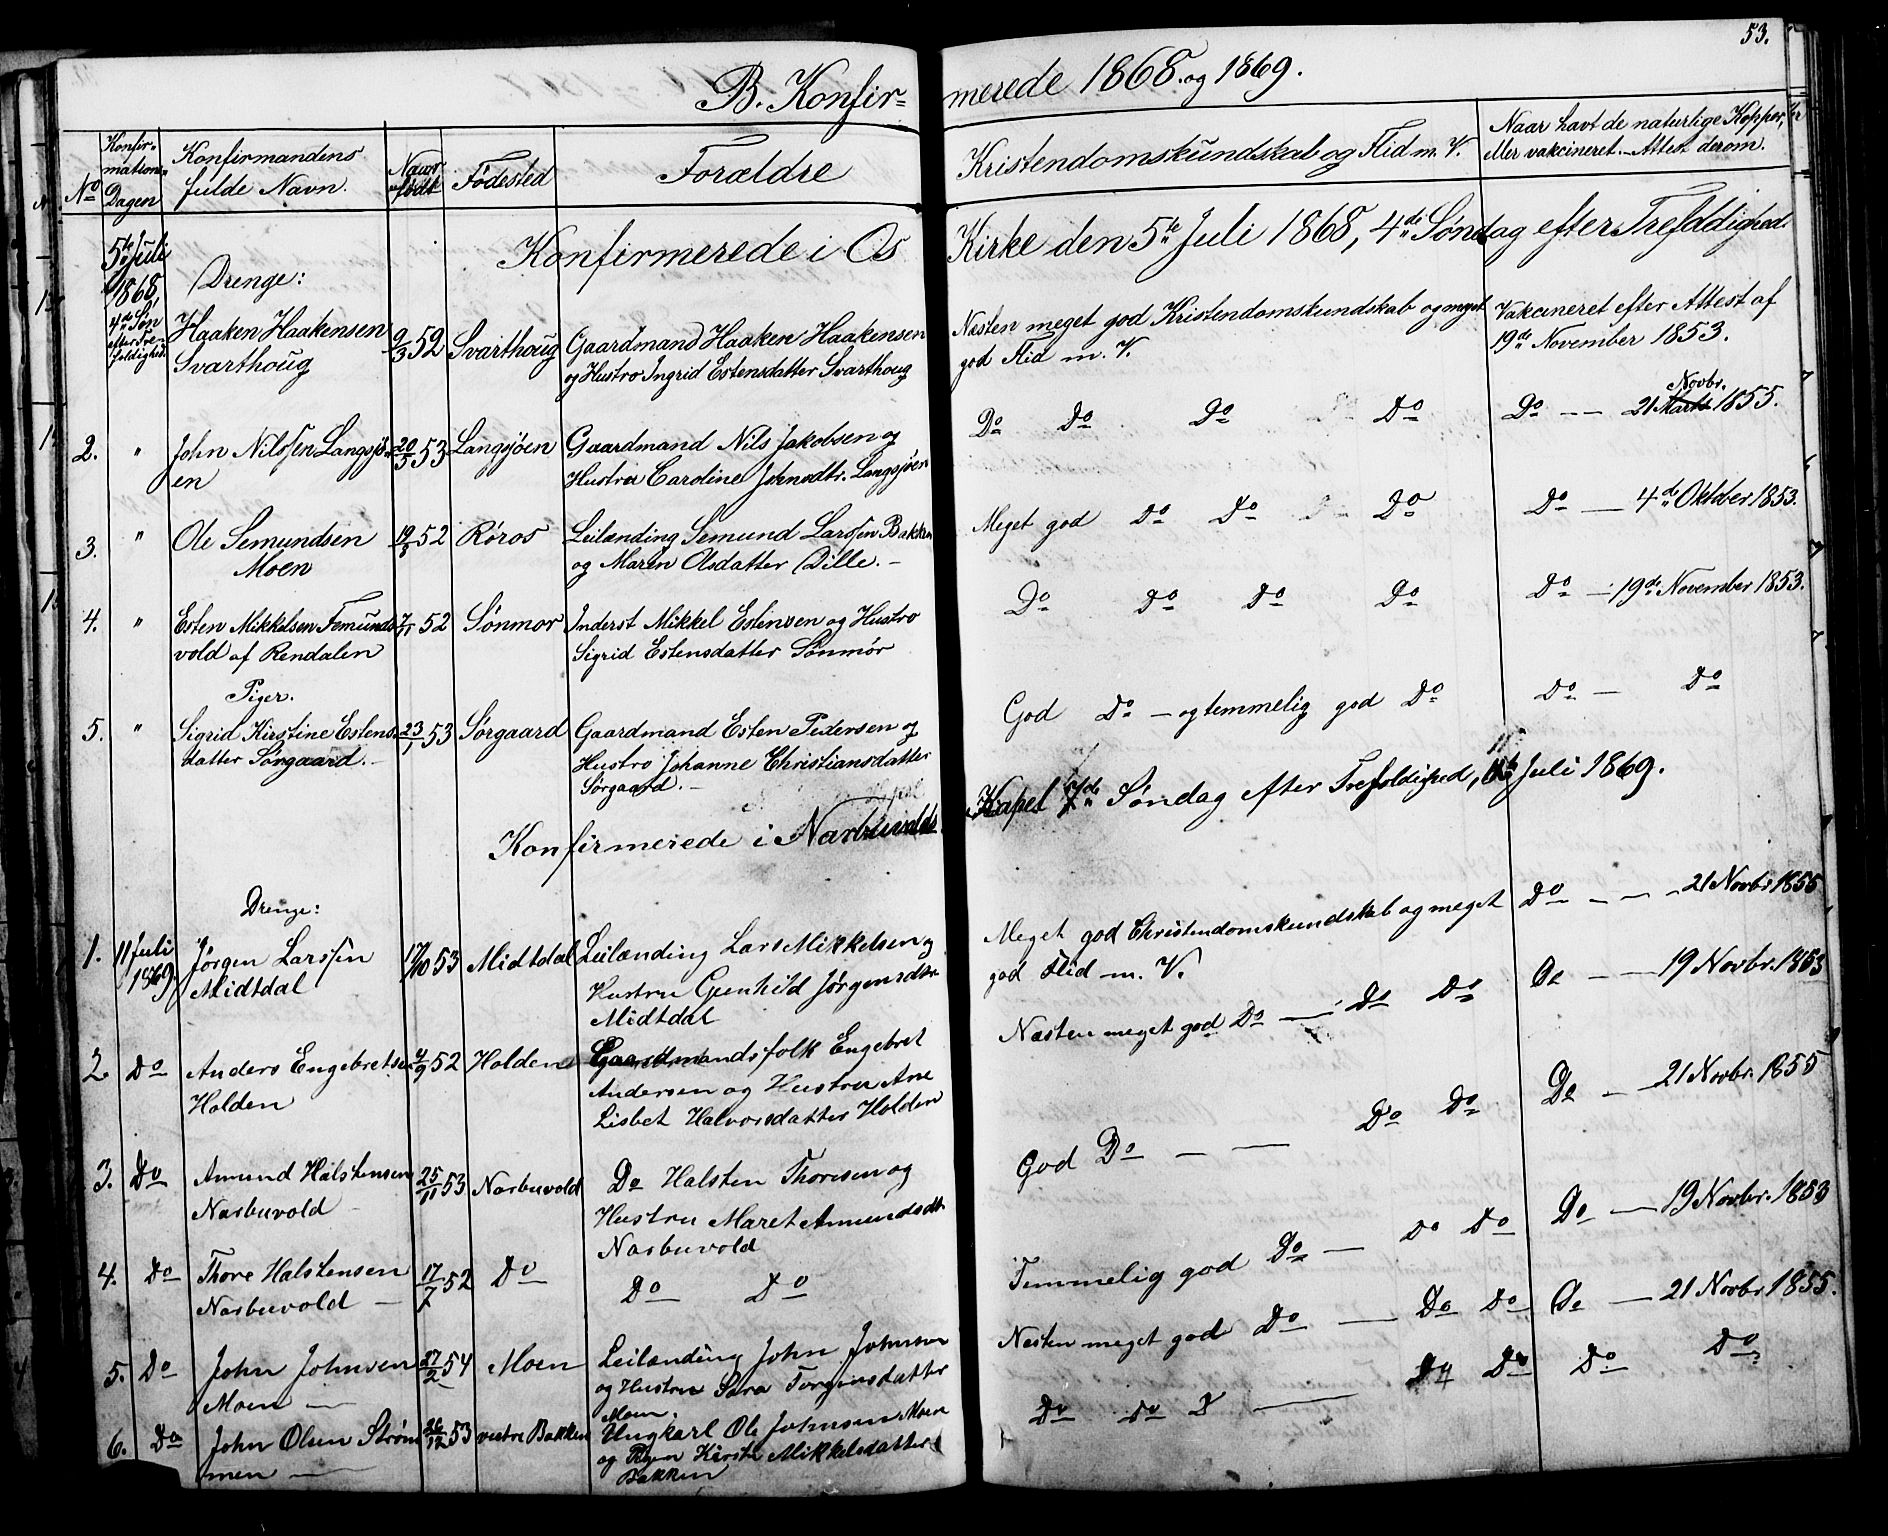 53.
B. Konfir=
merede 1868. og 1869.
No
Konfir=
mations=
Dagen
Konfirmandens
fulde Navn.
Naar
født
Fødested
Forældre
Kristendomskundskab og Flid m. V.
Naar havt de naturlige Kopper,
eller vakcineret. - Attest derom.
Konfirmerede i Os
Kirke den 5te Juli 1868, 4de Søndag efter Trefoldighed.
5te Juli
1868,
4de Søn
efter Tre-
foldighed.
Drenge:
Haaken Haakensen
Svarthoug
9/3 52
Svarthoug
Gaardmand Haaken Haakensen
og Hustro Ingrid Estensdatter Svarthoug
Næsten meget god Kristendomskundskab og meget
god Flid m. V.
Vakcineret efter Attest af
19de November 1853.
2.
"
John Nilssen Langsjø-
en
20/5 53
Langsjøen
Gaardmand Nils Jakobsen og
Hustru Caroline Johnsdtr. Langsjøen
Do Do Do Do
Novbr.
Do -- 21 Marts 1855.
3.
"
Ole Semundsen
Moen
52
Røros
Leilænding Semund Larssen Bakken
og Maren Olsdatter Dille. -
Meget god Do Do Do
Do - 4de Oktober 1853.
4.
"
Esten Mikkelsen Femunds
vold af Rendalen
7/11 52
Sønmør
Inderst Mikkel Estensen og Hustro
Sigrid Estensdatter Sønmør
Do Do Do Do
Do - 19de November 1853.
Piger.
5.
"
Sigrid Kirstine Estens-
datter Sørgaard. -
23/1 53
Sørgaard
Gaardmand Esten Pedersen og
Hustro Johanne Christiansdatter
Sørgaard. -
God Do - og temmelig god Do
Do - Do
Konfirmerede i Narbuvolds
Kapel 7de Søndag efter Trefoldighed, 11te Juli 1869.
Drenge:
1.
11 Juli
1869
Jørgen Larssen
Midtdal
17/10 53
Midtdal
Leilænding Lars Mikkelsen og
Hustru Gunhild Jørgensdtr
Midtdal
Meget god Christendomskundskab og meget
god Flid m. V.
Do - - - 21 Novbr 1855
2.
Do
Anders Engebretsen
Holden
4/9 52
Holden
Gaardmandsfolk Engebret
Andersen og Hustru Ane
Lisbet Halvorsdatter Holden
Næsten meget god Do - Do Do
Do - - 19 Novbr. 1853
3.
Do
Amund Halstensen
Narbuvold -
25/11 53
Narbuvold
Do Halsten Thoresen og
Hustru Maret Amundsdtr
Narbuvold
God Do - - Do Do
Do - 21 Novbr. 1855
4.
Do
Thore Halstensen
Narbuvold -
17/7 52
Do
Do Do
Temmelig god Do - Do Do
Do - 19 Novbr. 1853
5.
Do
John Johnsen
Moen -
27/2 54
Moen
Leilænding John Johnsen
og Hustru Sara Torgeirsdatter
Moen.
Næsten meget god Do - Do Do
Do - 21 Novbr 1855.
6.
Do
John Olsen Strøm
men -
26/12 53
vestre Bakken
Ungkarl Ole Johnsen Moen
og Pigen Kirsti Mikkelsdatter
Bakken
Do Do D - Do Do
Do Do